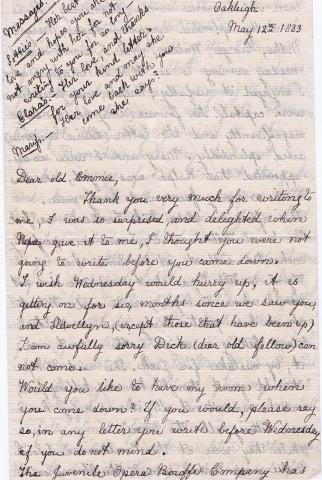 Messages
Lottie's — Her best
love and hopes you are
not angry with her for not
writing to you for so long —
Clara's — Her love and thanks
for your kind letter.
Mary's — Her love and may she
come back with you
some she says?
Oakleigh.
May 12th 1883
Dear old Emmie,
Thank you very much for writing to
me, I was so surprised and delighted when
Papa gave it to me, I thought you were not
going to write before you came down.
I wish Wednesday would hurry up, it is
getting on for six months since we saw you
and Llewellyn, (except those that have been up)
I am awfully sorry Dick (dear old fellow) can
not come.
Would you like to have my room when
you come down? If you would, please say
so, in any letter you write before Wednesday
if you do not mind.
The Juvenile Opera Bouffe Company has